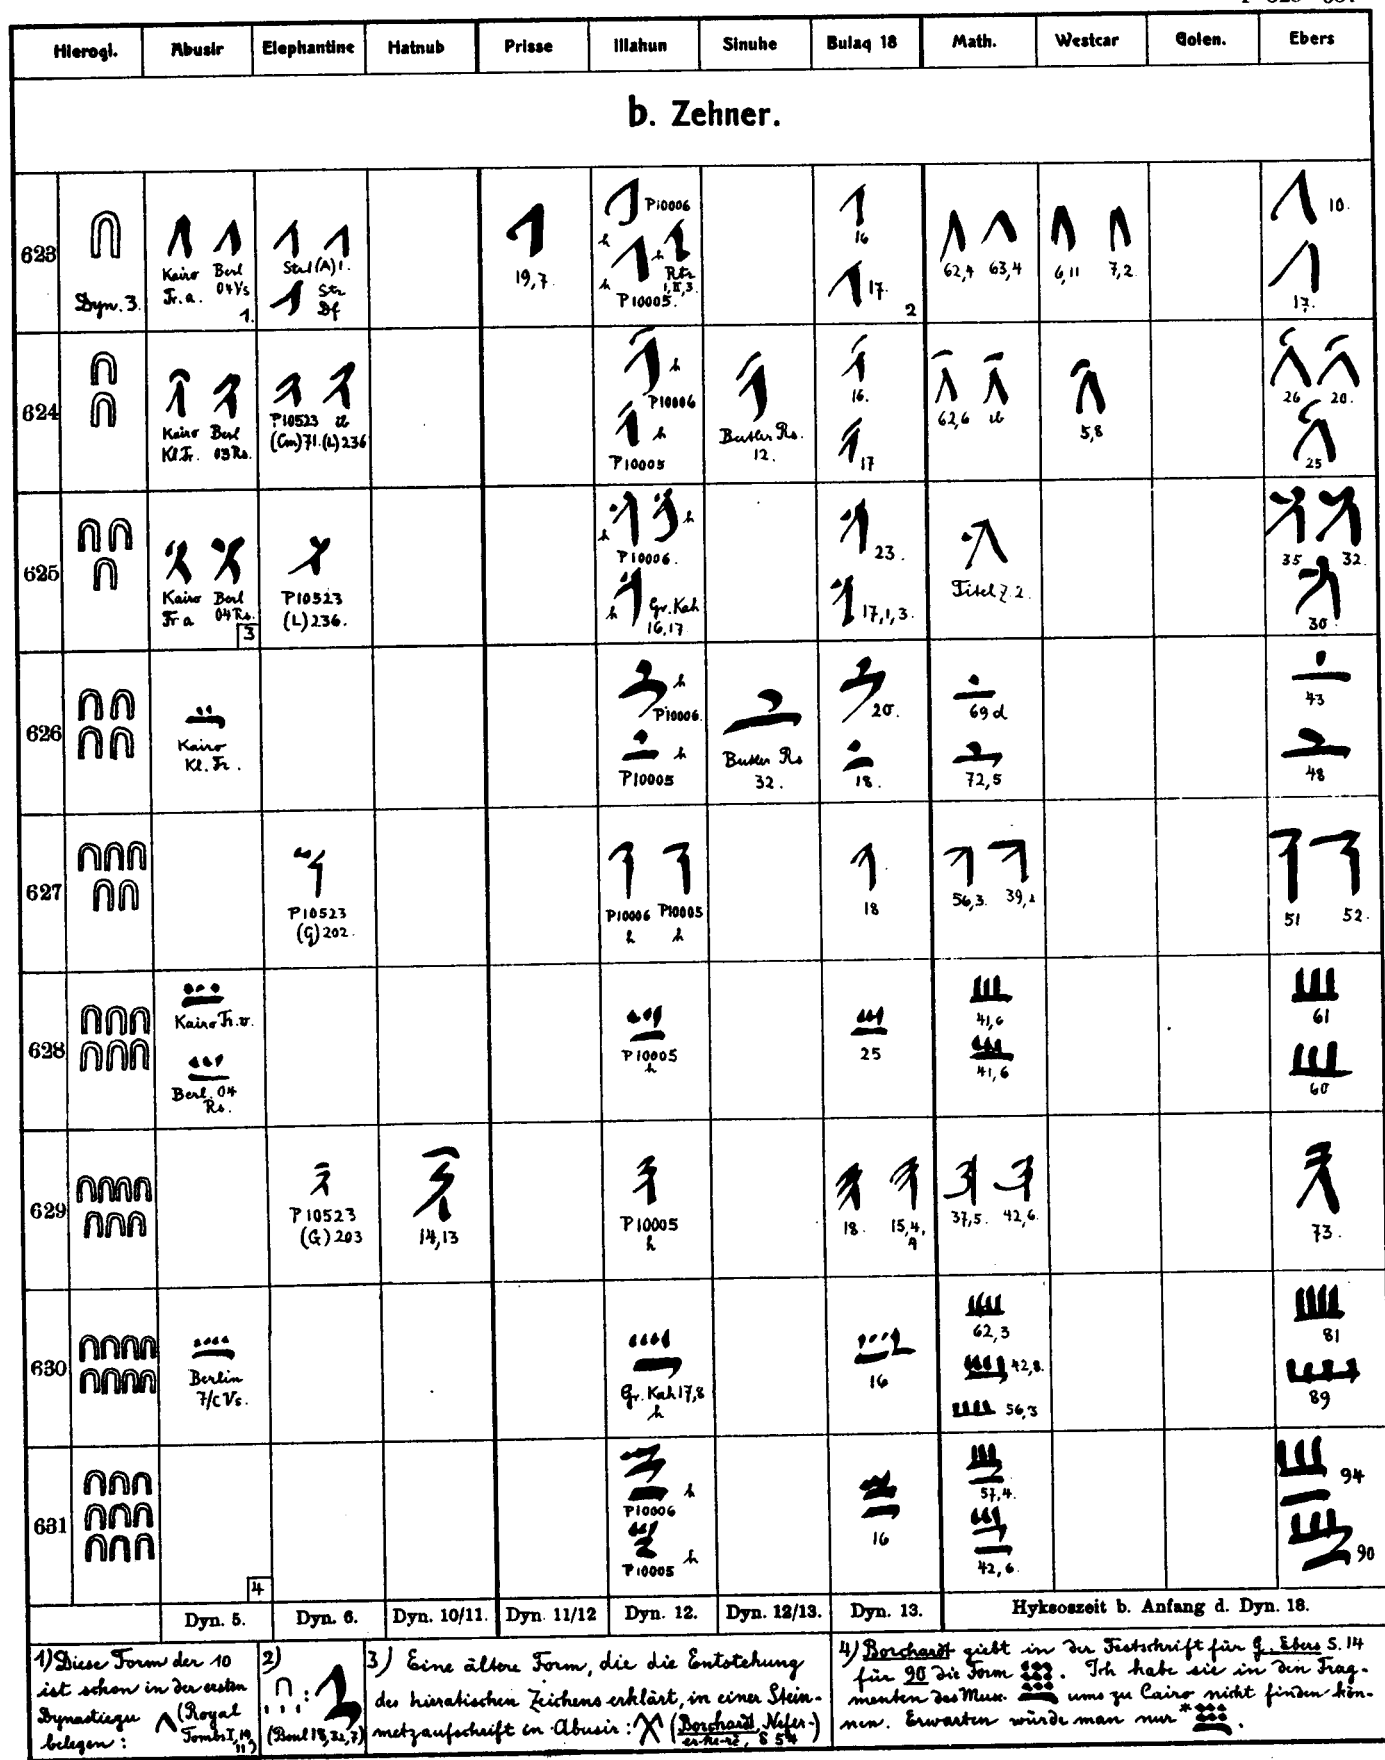 Hierogl. Abusir Elephantine Hatnub Prisse Illahun Sinuhe Bulaq 18 Math. Westcar Golen. Ebers
b. Zehner.
623
Dyn. 3.
Kairo Fr. a.
Berl 04 Vs
1.
Str(A)1.
Str Df
19,7.
P10006
h
h
h
Rtr I,II,3.
P10005.
16
17.
2
62,4 63,4
6,11 7,2.
10.
17.
624
Kairo Kl. Fr.
Berl 03 Rs.
P10523 ib
(Cm)71. (L)236
h
P10006
h
P10005
Butler Rs.
12.
16.
17
62,6 ib
5,8
26 20.
25
625
Kairo Fr a
Berl 04 Rs.
3
P10523
(L)236.
h
h
P10006.
h
Gr. Kah
16,17
23.
17,1,3.
Titel Z. 2.
35 32.
30.
626
Kairo
Kl. Fr.
h
P10006.
h
P10005
Butler Rs
32.
20.
18.
69 d
72,5
43
48
627
P10523
(G)202.
P10006 P10005
h h
18
56,3. 39,2
51 52.
628
Kairo Fr. v.
Berl. 04
Rs.
P10005
h
25
41,6
41,6
61
60
629
P10523
(G)203
14,13
P10005
h
18. 15,4,
37,5. 42,6.
73.
630
Berlin
7/c Vs.
Gr. Kah 17,8
h
16
62,3
42,8.
56,3
81
89
631
4
h
P10006
h
P10005
16
57,4.
42,6.
94
90
Dyn. 5. Dyn. 6. Dyn. 10/11. Dyn. 11/12 Dyn. 12. Dyn. 12/13. Dyn. 13. Hyksoszeit b. Anfang d. Dyn. 18.
1) Diese Form der 10
ist schon in der ersten
Dynastie zu
belegen: (Royal
Tombs I,
2)
(Boul 18,32,7)
3) Eine ältere Form, die die Entstehung
des hieratischen Zeichens erklärt, in einer Stein-
metzaufschrift in Abusir: (Borchardt, Nefer-
er-ke-re, S 54)
4) Borchardt giebt in der Festschrift für G. Ebers S. 14
für 90 die Form . Ich habe sie in den Frag-
menten des Mus. zu Cairo nicht finden kön-
nen. Erwarten würde man nur *